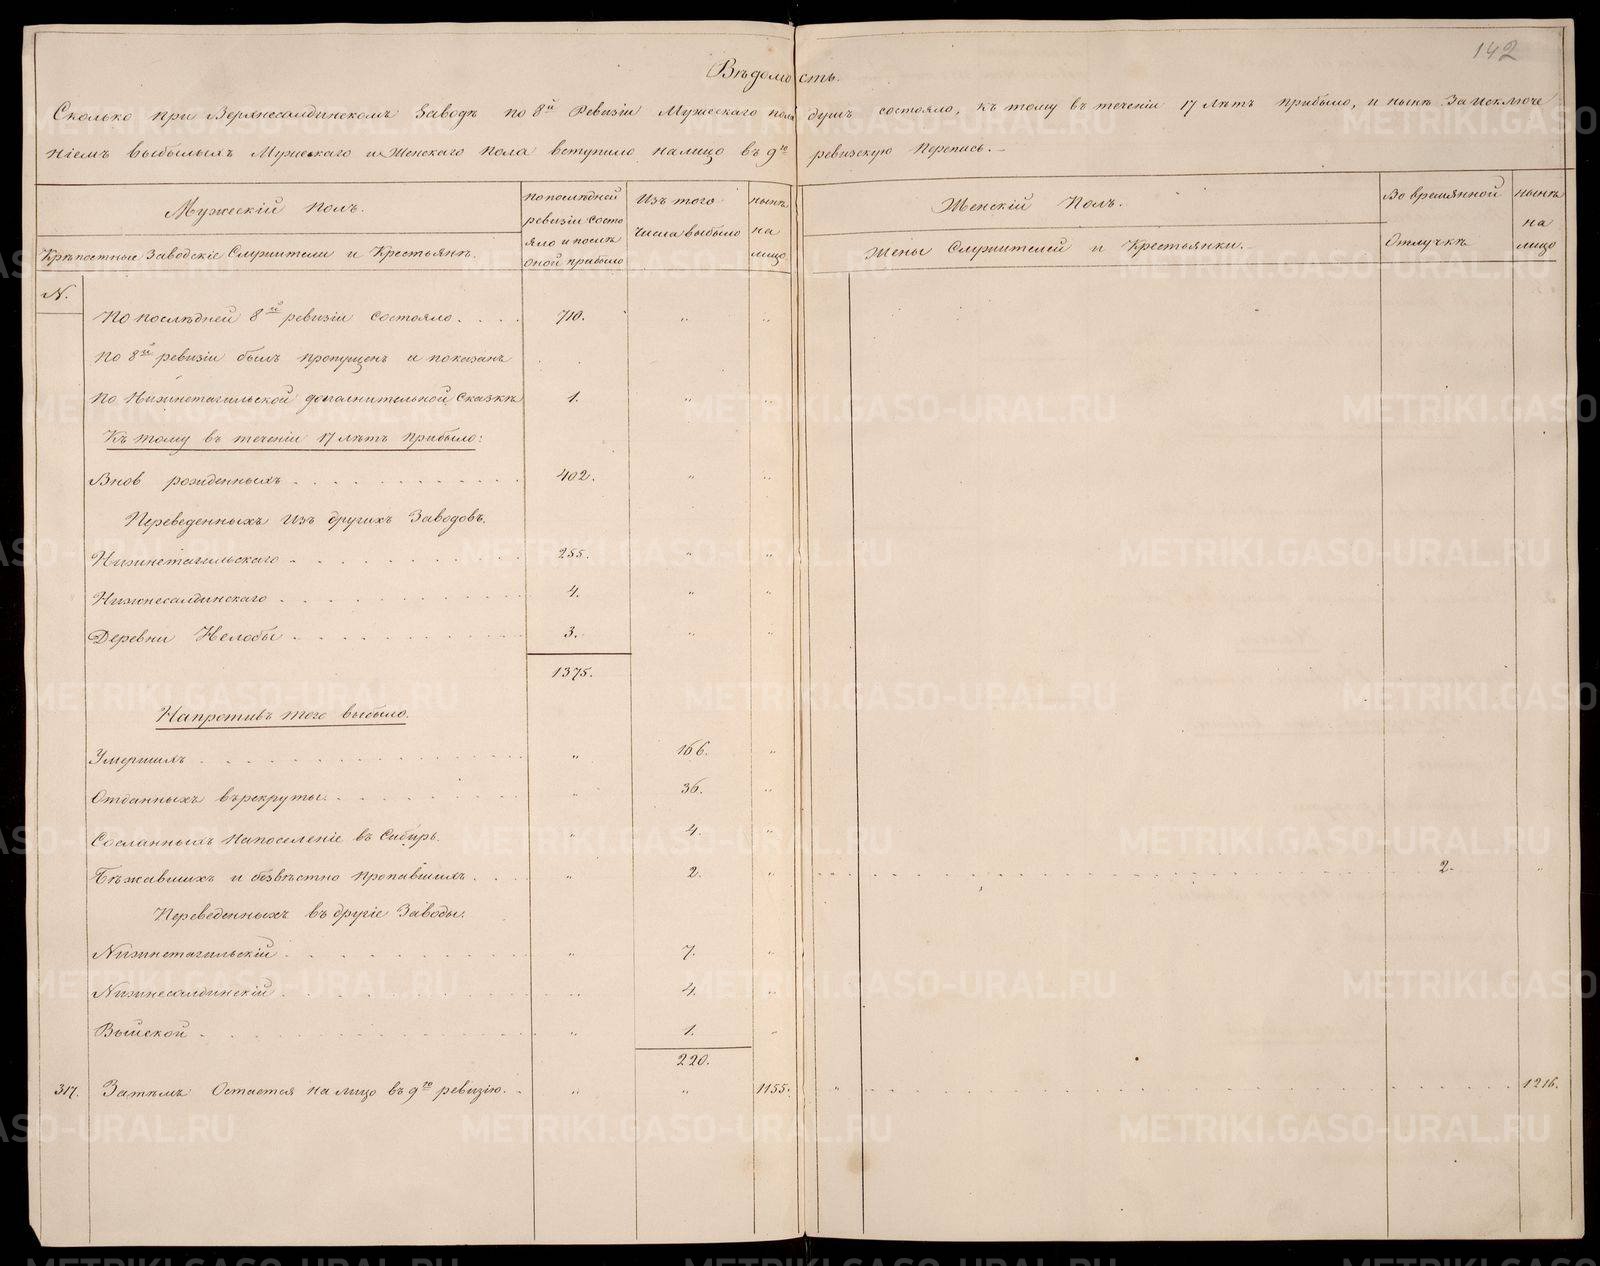 142
Вѣдомость.
Сколько при Верхнесалдинскомъ Заводѣ по 8й Ревизіи Мужескаго пола душъ состояло, къ тому въ теченіи 17 лѣтъ прибыло, и нынѣ За исключе
ніемъ выбылыхъ Мужескаго и Женскаго Пола вступило на лицо въ 9ю ревизскую Перепись.
Мужескій Полъ.
По последней ревизіи состо
яло и послѣ оной прибыло
Изъ того числа выбыло
нынѣ на лицо
Женскій Полъ.
Во времянной Отлучкѣ
нынѣ на лицо
Крѣпостные Заводскіе Служители и Крестьянѣ.
Жены Служителей и Крестьянки.
N.
По послѣдней 8й ревизіи состояло. 710.
По 8й ревизіи былъ пропущенъ и показанъ
по Нижнетагильской дополнительной сказкѣ 1.
Къ тому въ теченіи 17 лѣтъ прибыло:
Внов рожденныхъ 402.
Переведенныхъ Изъ другихъ Заводовъ.
Нижнетагильскаго 255.
Нижнесалдинскаго 4.
Деревни Нелобы 3.
1375.
Напротивъ того выбыло.
Умершихъ 166.
Отданныхъ върекруты. 36.
Сосланныхъ Напоселеніе въ Сибирь. 4.
Бѣжавшихъ и безвѣстно пропавшихъ. 2. 2.
Переведенныхъ въ другіе Заводы.
Нижнетагильскій 7.
Нижнесалдинскій 4.
Выйской 1.
220.
317. Затѣмъ Остается на лицо въ 9ю ревизію. 1155. 1216.
METRIKI.GASO-URAL.RU